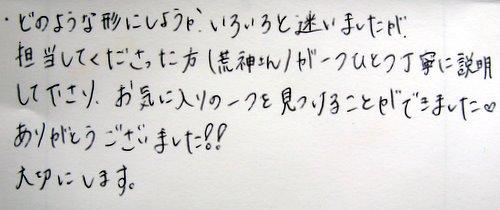 ・どのような形にしようか、いろいろと迷いましたが、
担当してくださった方(荒神さん)が一つひとつ丁寧に説明
して下さり、お気に入りの一つを見つけることができました♡
ありがとうございました!!
大切にします。